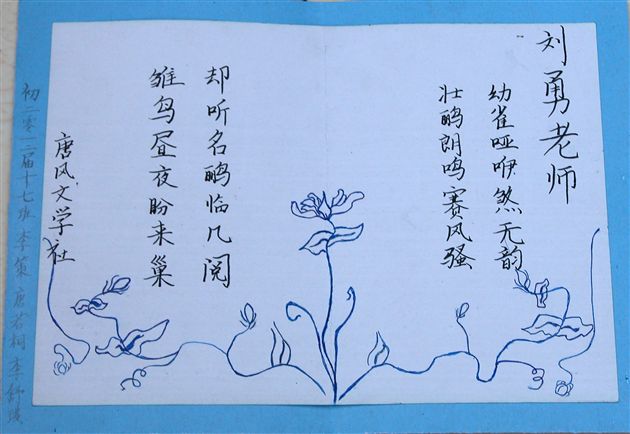 刘勇老师
幼雀哑咿煞无韵
壮鹂朗鸣赛风骚
却听名鹂临几阅
雏鸟昼夜盼来巢
唐风文学社
初二零一二届十七班 李策 唐若桐 李舒